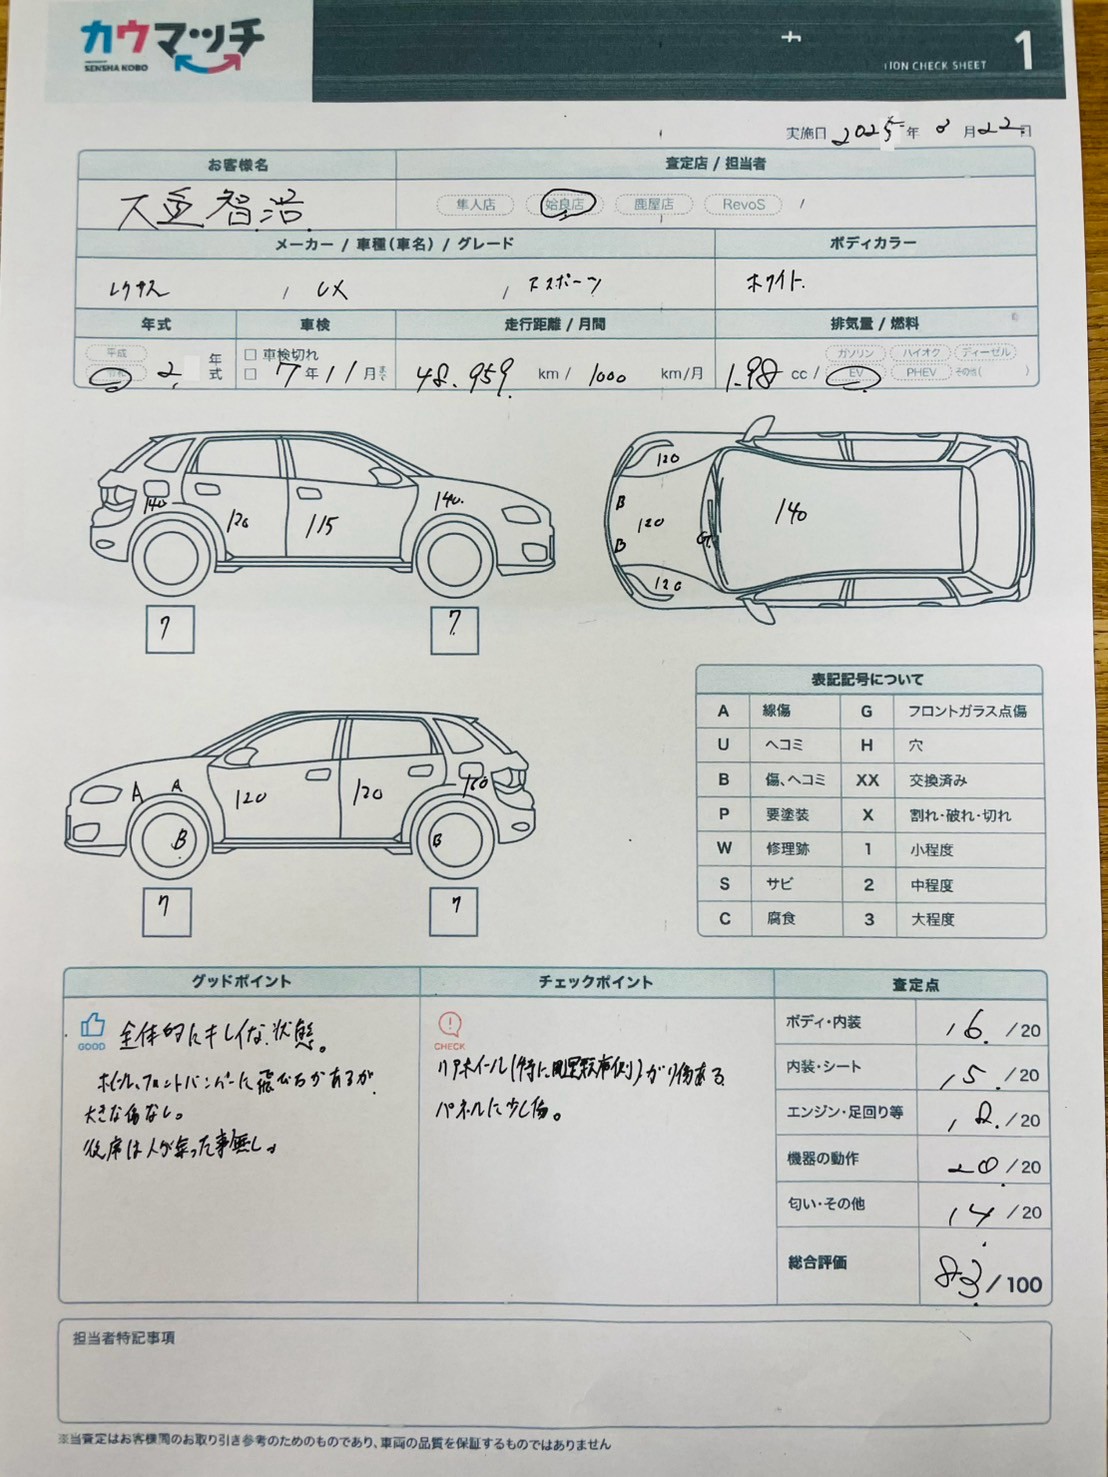 カウマッチ
SENSHA KOBO
TION CHECK SHEET
1
実施日 2025年 8月22日
お客様名
査定店 / 担当者
智浩
隼人店 姶良店 鹿屋店 RevoS /
メーカー / 車種(車名) / グレード
ボディカラー
レクサス / UX / Fスポーツ
ホワイト
年式
車検
走行距離 / 月間
排気量 / 燃料
平成
令和
2 年式
□ 車検切れ
□ 7年11月まで
48.959 km / 1000 km/月
1.98 cc /
ガソリン ハイオク ディーゼル
EV PHEV その他( )
140 120 115 140
7 7
120
B
120
B
G
140
120
A A 120 120 160
B B
7 7
表記記号について
A 線傷 G フロントガラス点傷
U ヘコミ H 穴
B 傷、ヘコミ XX 交換済み
P 要塗装 X 割れ・破れ・切れ
W 修理跡 1 小程度
S サビ 2 中程度
C 腐食 3 大程度
グッドポイント
GOOD
全体的にキレイな状態。
ホイール、フロントバンパーに飛び石があるが
大きな傷なし。
後席は人が乗った事無し。
チェックポイント
CHECK
リアホイール(特に助手席側)ガリ傷ある
パネルに少し傷。
査定点
ボディ・内装 16 /20
内装・シート 15 /20
エンジン・足回り等 18 /20
機器の動作 20 /20
匂い・その他 14 /20
総合評価 83 /100
担当者特記事項
※当査定はお客様間のお取り引き参考のためのものであり、車両の品質を保証するものではありません